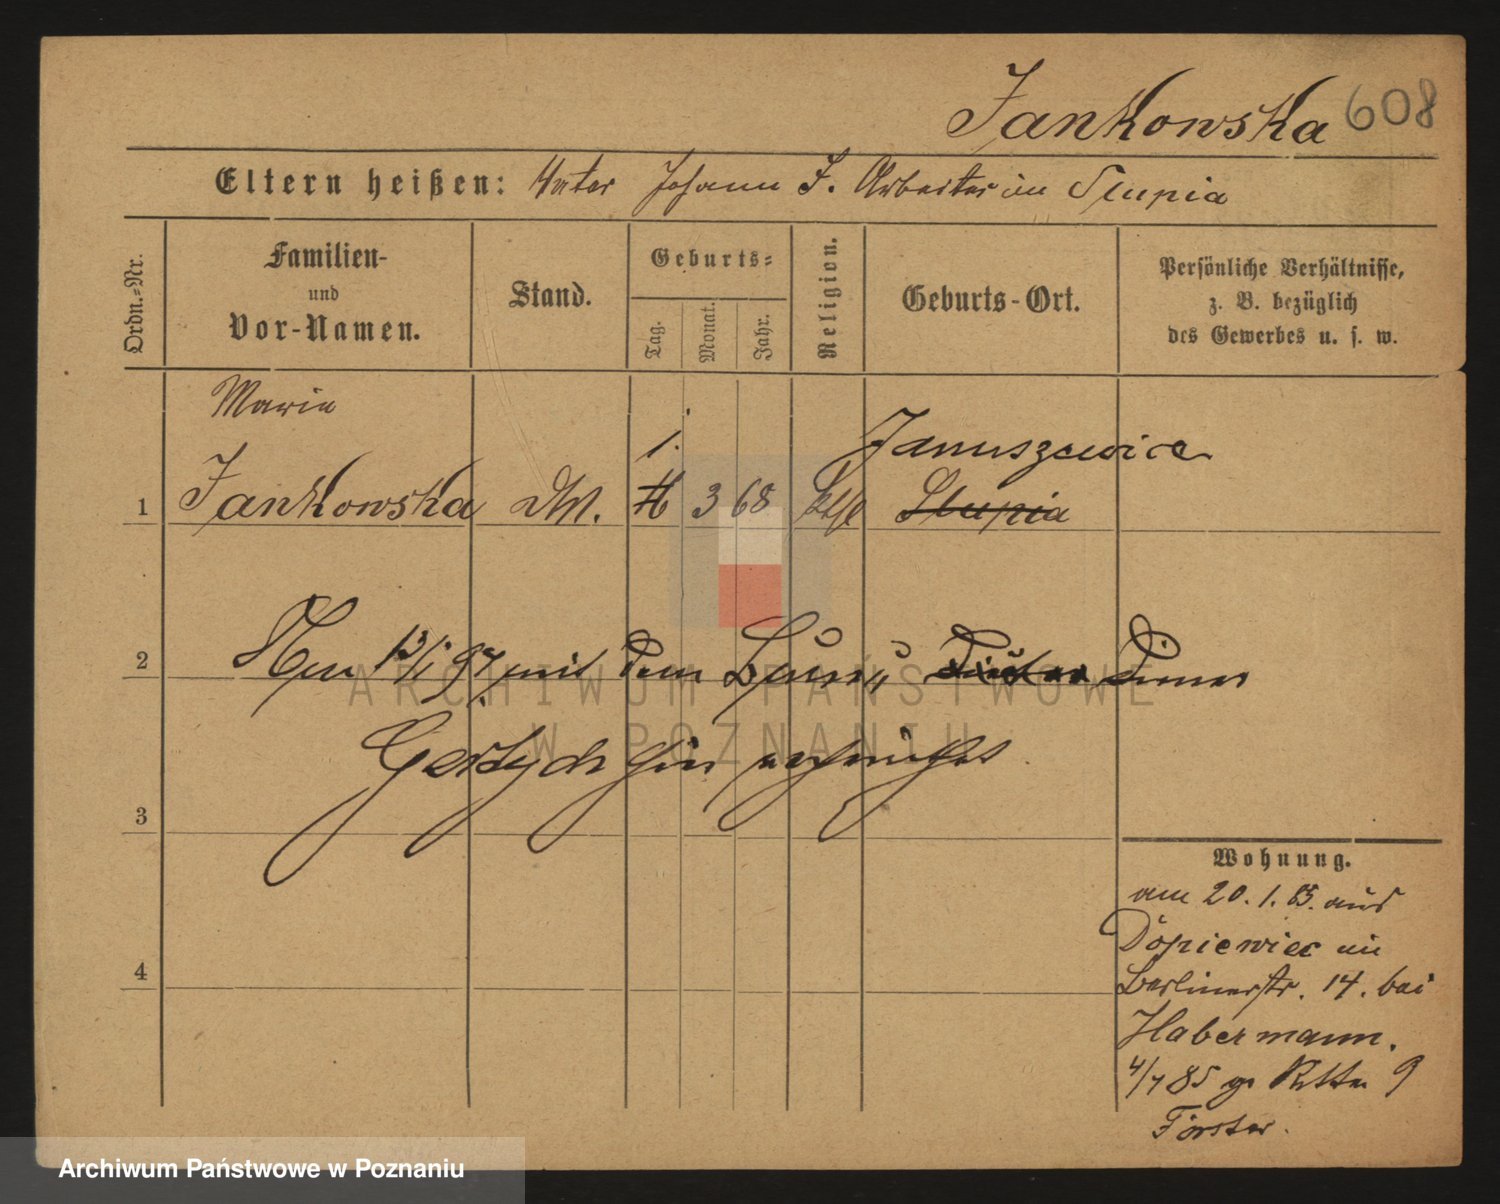 Jankowska 608
Eltern heißen: Vater Johann J. Arbeiter in Slupia
Ordn.-Nr.
Familien-
und
Vor-Namen.
Stand.
Geburts-
Tag.
Monat.
Jahr.
Religion.
Geburts-Ort.
Persönliche Verhältnisse,
z. B. bezüglich
des Gewerbes u. s. w.
Marie
1. Januszewice
1 Jankowska 3 68 Slupia
2 mit dem Diener
Gertych hier
3
4
Wohnung.
am 20. 1. 85. aus
Dopiewiec in
Berlinerstr. 14. bei
Habermann.
4/7 85 Ritter 9
Förster.
ARCHIWUM PAŃSTWOWE
W POZNANIU
Archiwum Państwowe w Poznaniu